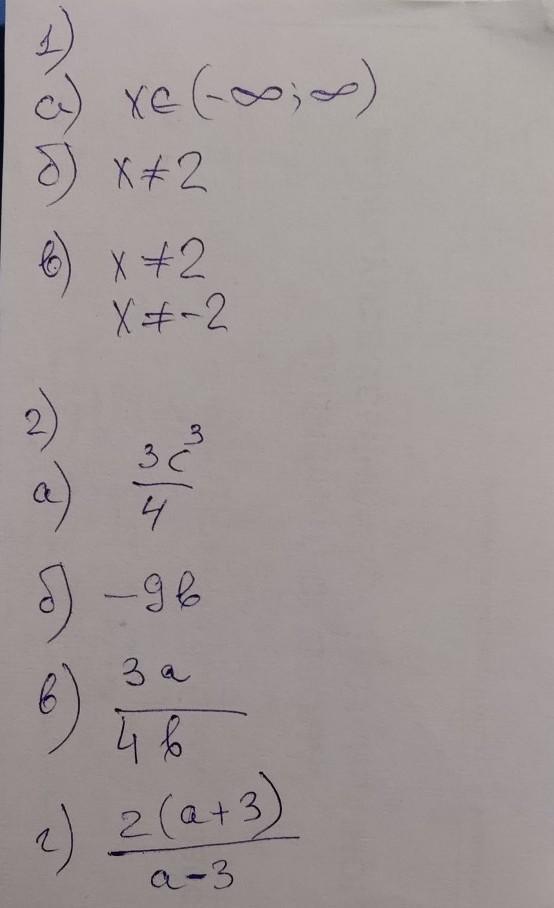 1)
а) x∈(-∞;∞)
б) x≠2
в) x≠2
x≠-2
2)
а) 3c³
4
б) -9b
в) 3a
4b
г) 2(a+3)
a-3